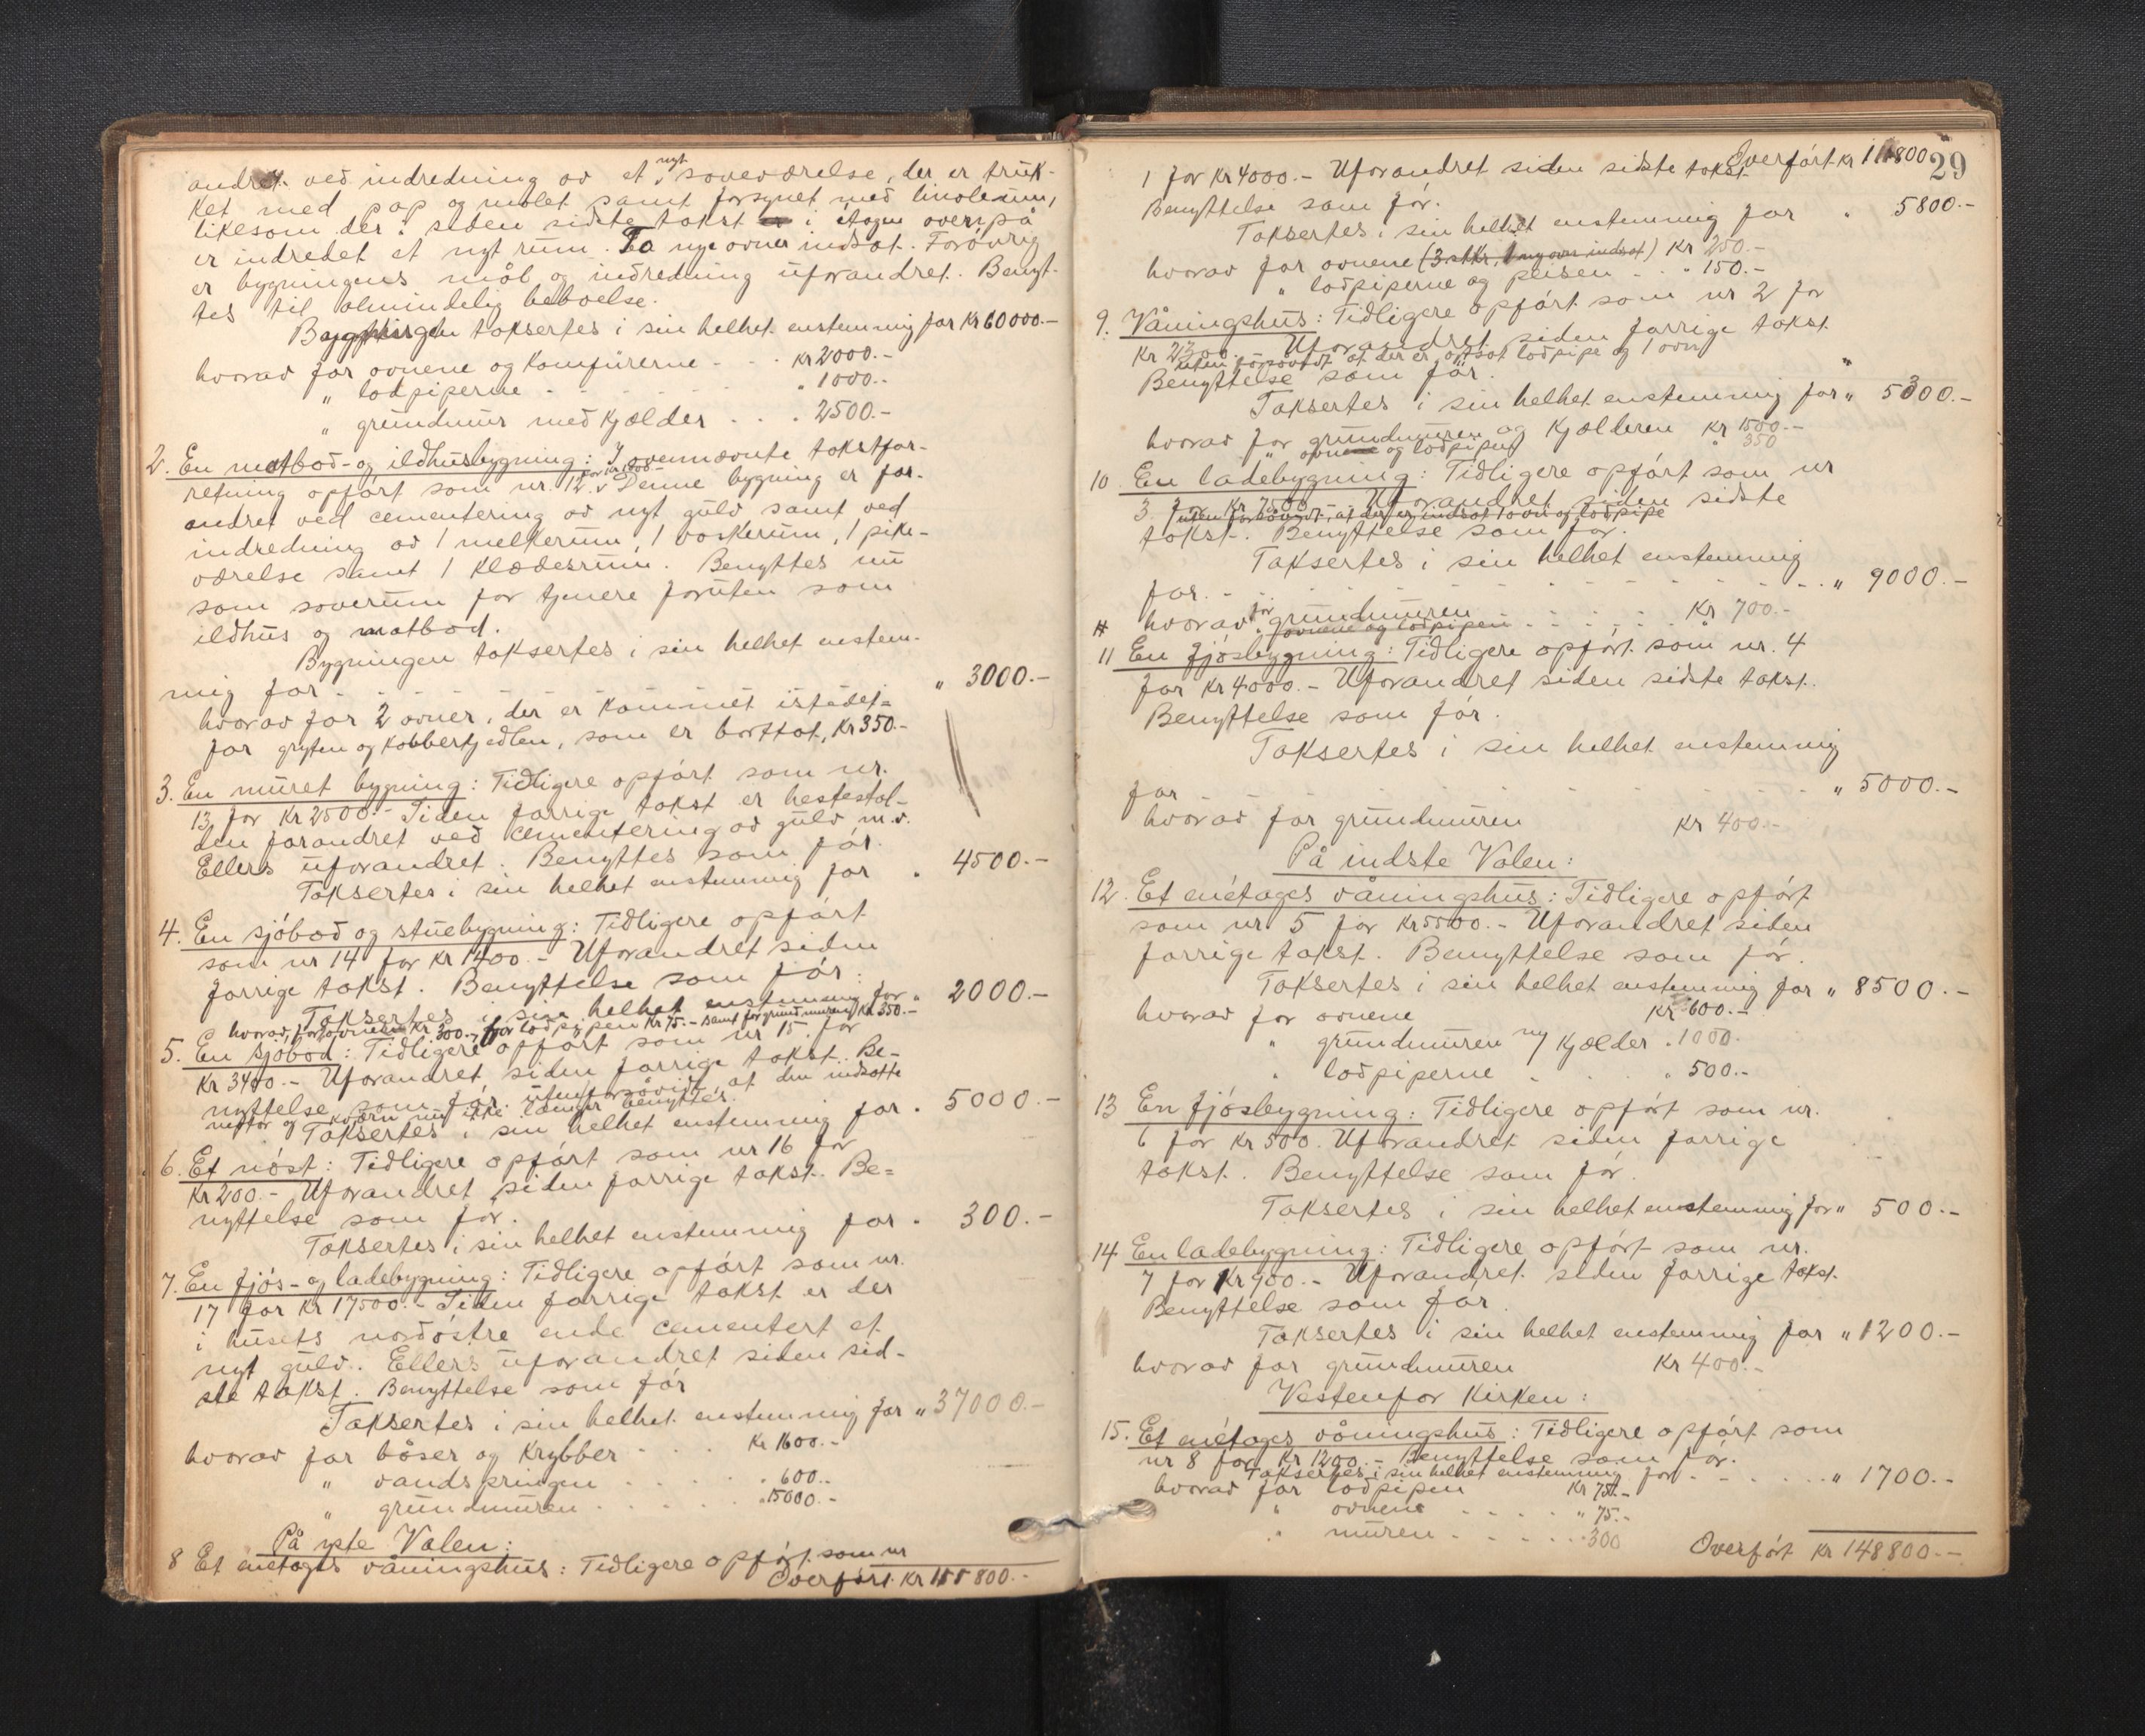 andret ved indredning av et nyt soveværelse, der er truk-
ket med pap og malet samt forsynet med linoleum,
likesom der siden sidste takst i étagen ovenpå
er indredet et nyt rum. To nye ovner indsat. Forøvrig
er bygningens mål og indredning uforandret. Benyt-
tes til almindelig beboelse.
Bygningen taksertes i sin helhet enstemmig for kr 60000.-
hvorav for ovnene og komfurerne - - - kr 2000.-
" lodpiperne - - - " 1000.-
" grundmur med kjælder . . . 2500.-
2. En matbod- og ildhusbygning: I ovennævnte takstfor-
retning opført som nr. 12 for kr 1800.- Denne bygning er for-
andret ved cementering av nyt gulv samt ved
indredning av 1 melkerum, 1 vaskerum, 1 pike-
værelse samt 1 klædesrum. Benyttes nu
som soverum for tjenere foruten som
ildhus og matbod.
Bygningen taksertes i sin helhet enstem-
mig for - - - " 3000.-
hvorav for 2 ovner, der er kommet istedet-
for gryten og kobberkjedlen, som er borttat, kr 350.-
3. En muret bygning: Tidligere opført som nr.
13 for kr 2500.- Siden forrige takst er hestestal-
den forandret ved cementering av gulv m.v.
Ellers uforandret. Benyttes som før.
Taksertes i sin helhet enstemmig for " 4500.-
4. En sjøbod og stuebygning: Tidligere opført
som nr 14 for kr 1400.- Uforandret siden
forrige takst. Benyttelse som før.
Taksertes i sin helhet enstemmig for " 2000.-
hvorav for ovnene kr 300.-, for lodpipen kr 75.- samt for grundmuren kr 350.-
5. En sjøbod: Tidligere opført som nr 15 for
kr 3400.- Uforandret siden forrige takst. Be-
nyttelse som før, uten forsåvidt, at den indsatte
motor og kværn nu ikke længer benyttes.
Taksertes i sin helhet enstemmig for . 5000.-
6. Et nøst: Tidligere opført som nr 16 for
kr 200.- Uforandret siden forrige takst. Be=
nyttelse som før.
Taksertes i sin helhet enstemmig for . 300.-
7. En fjøs- og ladebygning: Tidligere opført som nr.
17 for kr 17500.- Siden forrige takst er der
i husets nordøstre ende cementert et
nyt gulv. Ellers uforandret siden sid-
ste takst. Benyttelse som før
Taksertes i sin helhet enstemmig for " 37000.-
hvorav for båser og krybber - - - kr 1600.-
" vandspringen . . . " 600.-
" grundmuren . . . " 15000.-
På yte Valen:
8 Et enétages våningshus: Tidligere opført som nr
Overført kr 111800.-
29
Overført kr 111800
1 for kr 4000.- Uforandret siden sidste takst.
Benyttelse som før.
Taksertes i sin helhet enstemmig for " 5800.-
hvorav for ovnene (3 stkr, 1 ny ovn indsat) kr 250.-
" lodpiperne og peisen - - " 150.-
9. Våningshus: Tidligere opført som nr 2 for
kr 2300. Uforandret siden forrige takst
uten forsåvidt at der er opsat lodpipe og 1 ovn
Benyttelse som før.
Taksertes i sin helhet enstemmig for " 5300.-
hvorav for grundmuren og kjælderen kr 1500.-
" ovnene og lodpipen " 350
10 En ladebygning: Tidligere opført som nr
3 for kr 7500.- Uforandret siden sidste
uten forsåvidt, at der er indsat 1 ovn og lodpipe
takst. Benyttelse som før.
Taksertes i sin helhet enstemmig
for. - - - " 9000.-
hvorav for grundmuren . . . kr 700.-
ovnene og lodpipen
11 En fjøsbygning: Tidligere opført som nr. 4
for kr 4000.- Uforandret siden sidste takst.
Benyttelse som før.
Taksertes i sin helhet enstemmig
for - - - " 5000.-
hvorav for grundmuren kr 400.-
På indste Valen:
12. Et enétages våningshus: Tidligere opført
som nr 5 for kr 5500.- Uforandret siden
forrige takst. Benyttelse som før.
Taksertes i sin helhet enstemmig for " 8500.-
hvorav for ovnene kr 600.-
" grundmuren m/ kjælder . 1000.
" lodpiperne . . . " 500.-
13 En fjøsbygning: Tidligere opført som nr.
6 for kr 500. Uforandret siden forrige
takst. Benyttelse som før.
Taksertes i sin helhet enstemmig for " 500.-
14 En ladebygning: Tidligere opført som nr.
7 for kr 900.- Uforandret siden forrige takst.
Benyttelse som før.
Taksertes i sin helhet enstemmig for " 1200.-
hvorav for grundmuren kr 400.-
Vestenfor Kirken:
15. Et enétages våningshus: Tidligere opført som
nr 8 for kr 1200.- Benyttelse som før.
Taksertes i sin helhet enstemmig for - - - " 1700.-
hvorav for lodpipen kr 75.-
" ovnene . . . " 75.-
" muren - - - 300
Overført kr 148800.-